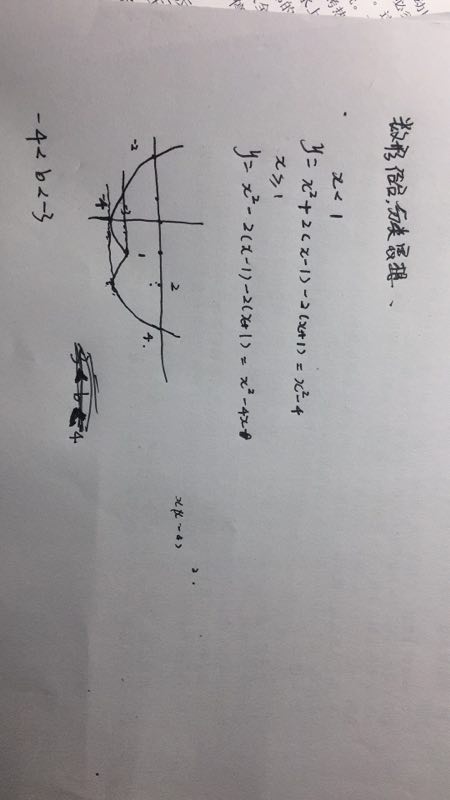 数形结合,分类思想、
x<1
y=x²+2(x-1)-2(x+1)=x²-4
x≥1
y=x²-2(x-1)-2(x+1)=x²-4x
-2
2
1
4.
-3
-4
-4<b<-3
x(x-4)